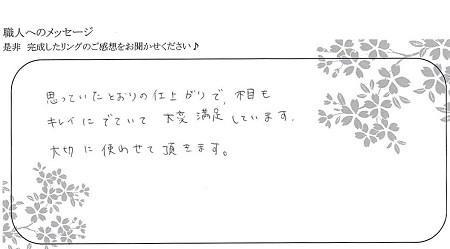 職人へのメッセージ
是非 完成したリングのご感想をお聞かせください♪
思っていたとおりの仕上がりで、木目も
キレイにでていて 大変 満足しています。
大切に 使わせて 頂きます。